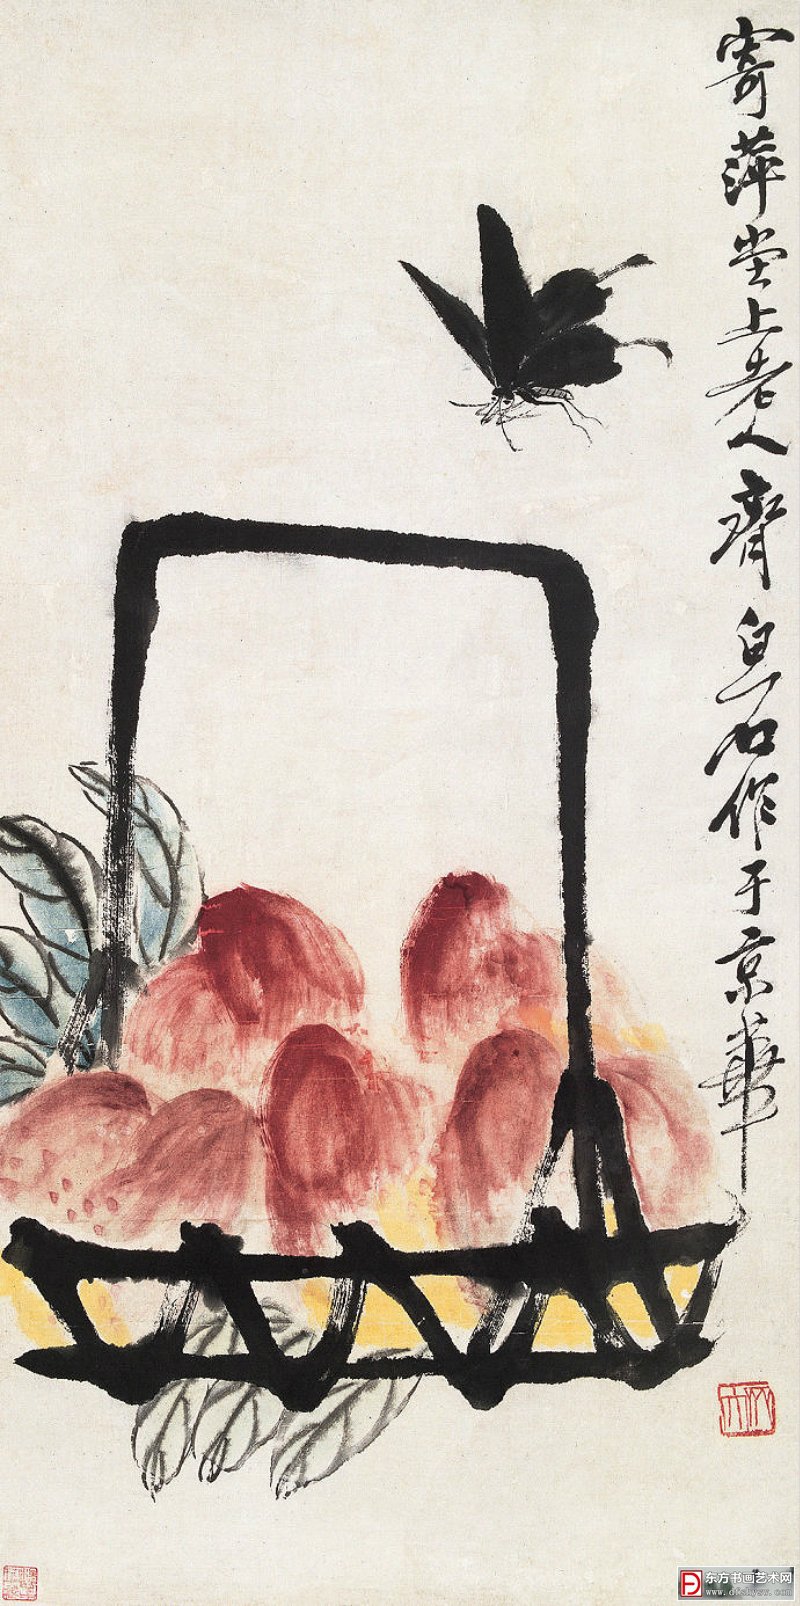 寄萍堂上老人齊白石作于京華
木人
东方书画艺术网
www.dfshysw.com